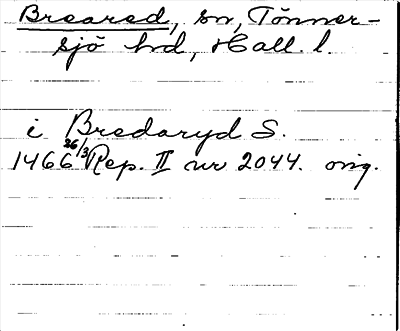 Breared, sn, Tönner-
sjö hd, Hall. l.
i Bredaryd S.
1466 26/3 Rep. II nr 2044. orig.